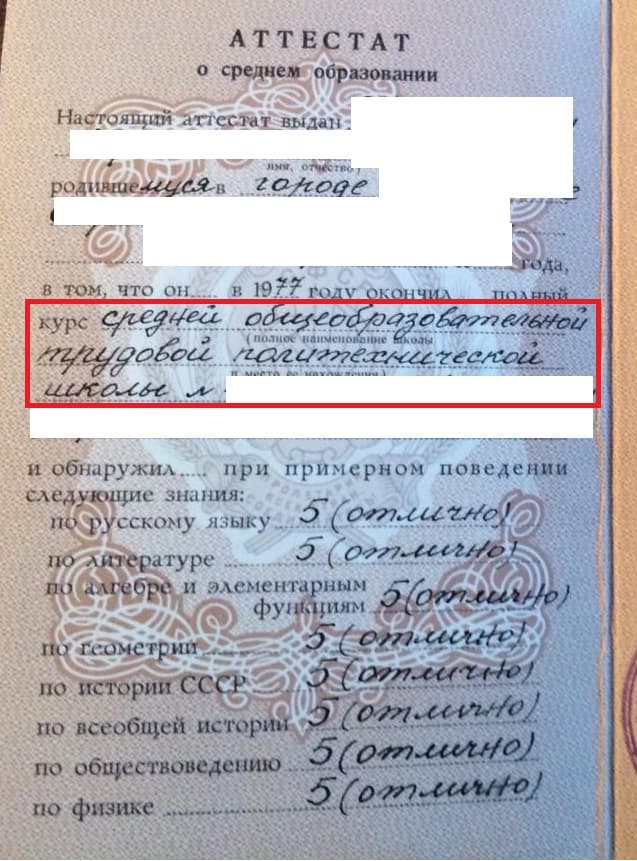 АТТЕСТАТ
о среднем образовании
Настоящий аттестат выдан
имя, отчество)
родившемуся в городе
года,
в том, что он в 1977 году окончил полный
курс средней общеобразовательной
(полное наименование школы
трудовой политехнической
и место ее нахождения)
школы
и обнаружил при примерном поведении
следующие знания:
по русскому языку 5 (отлично)
по литературе 5 (отлично)
по алгебре и элементарным
функциям 5 (отлично)
по геометрии 5 (отлично)
по истории СССР 5 (отлично)
по всеобщей истории 5 (отлично)
по обществоведению 5 (отлично)
по физике 5 (отлично)